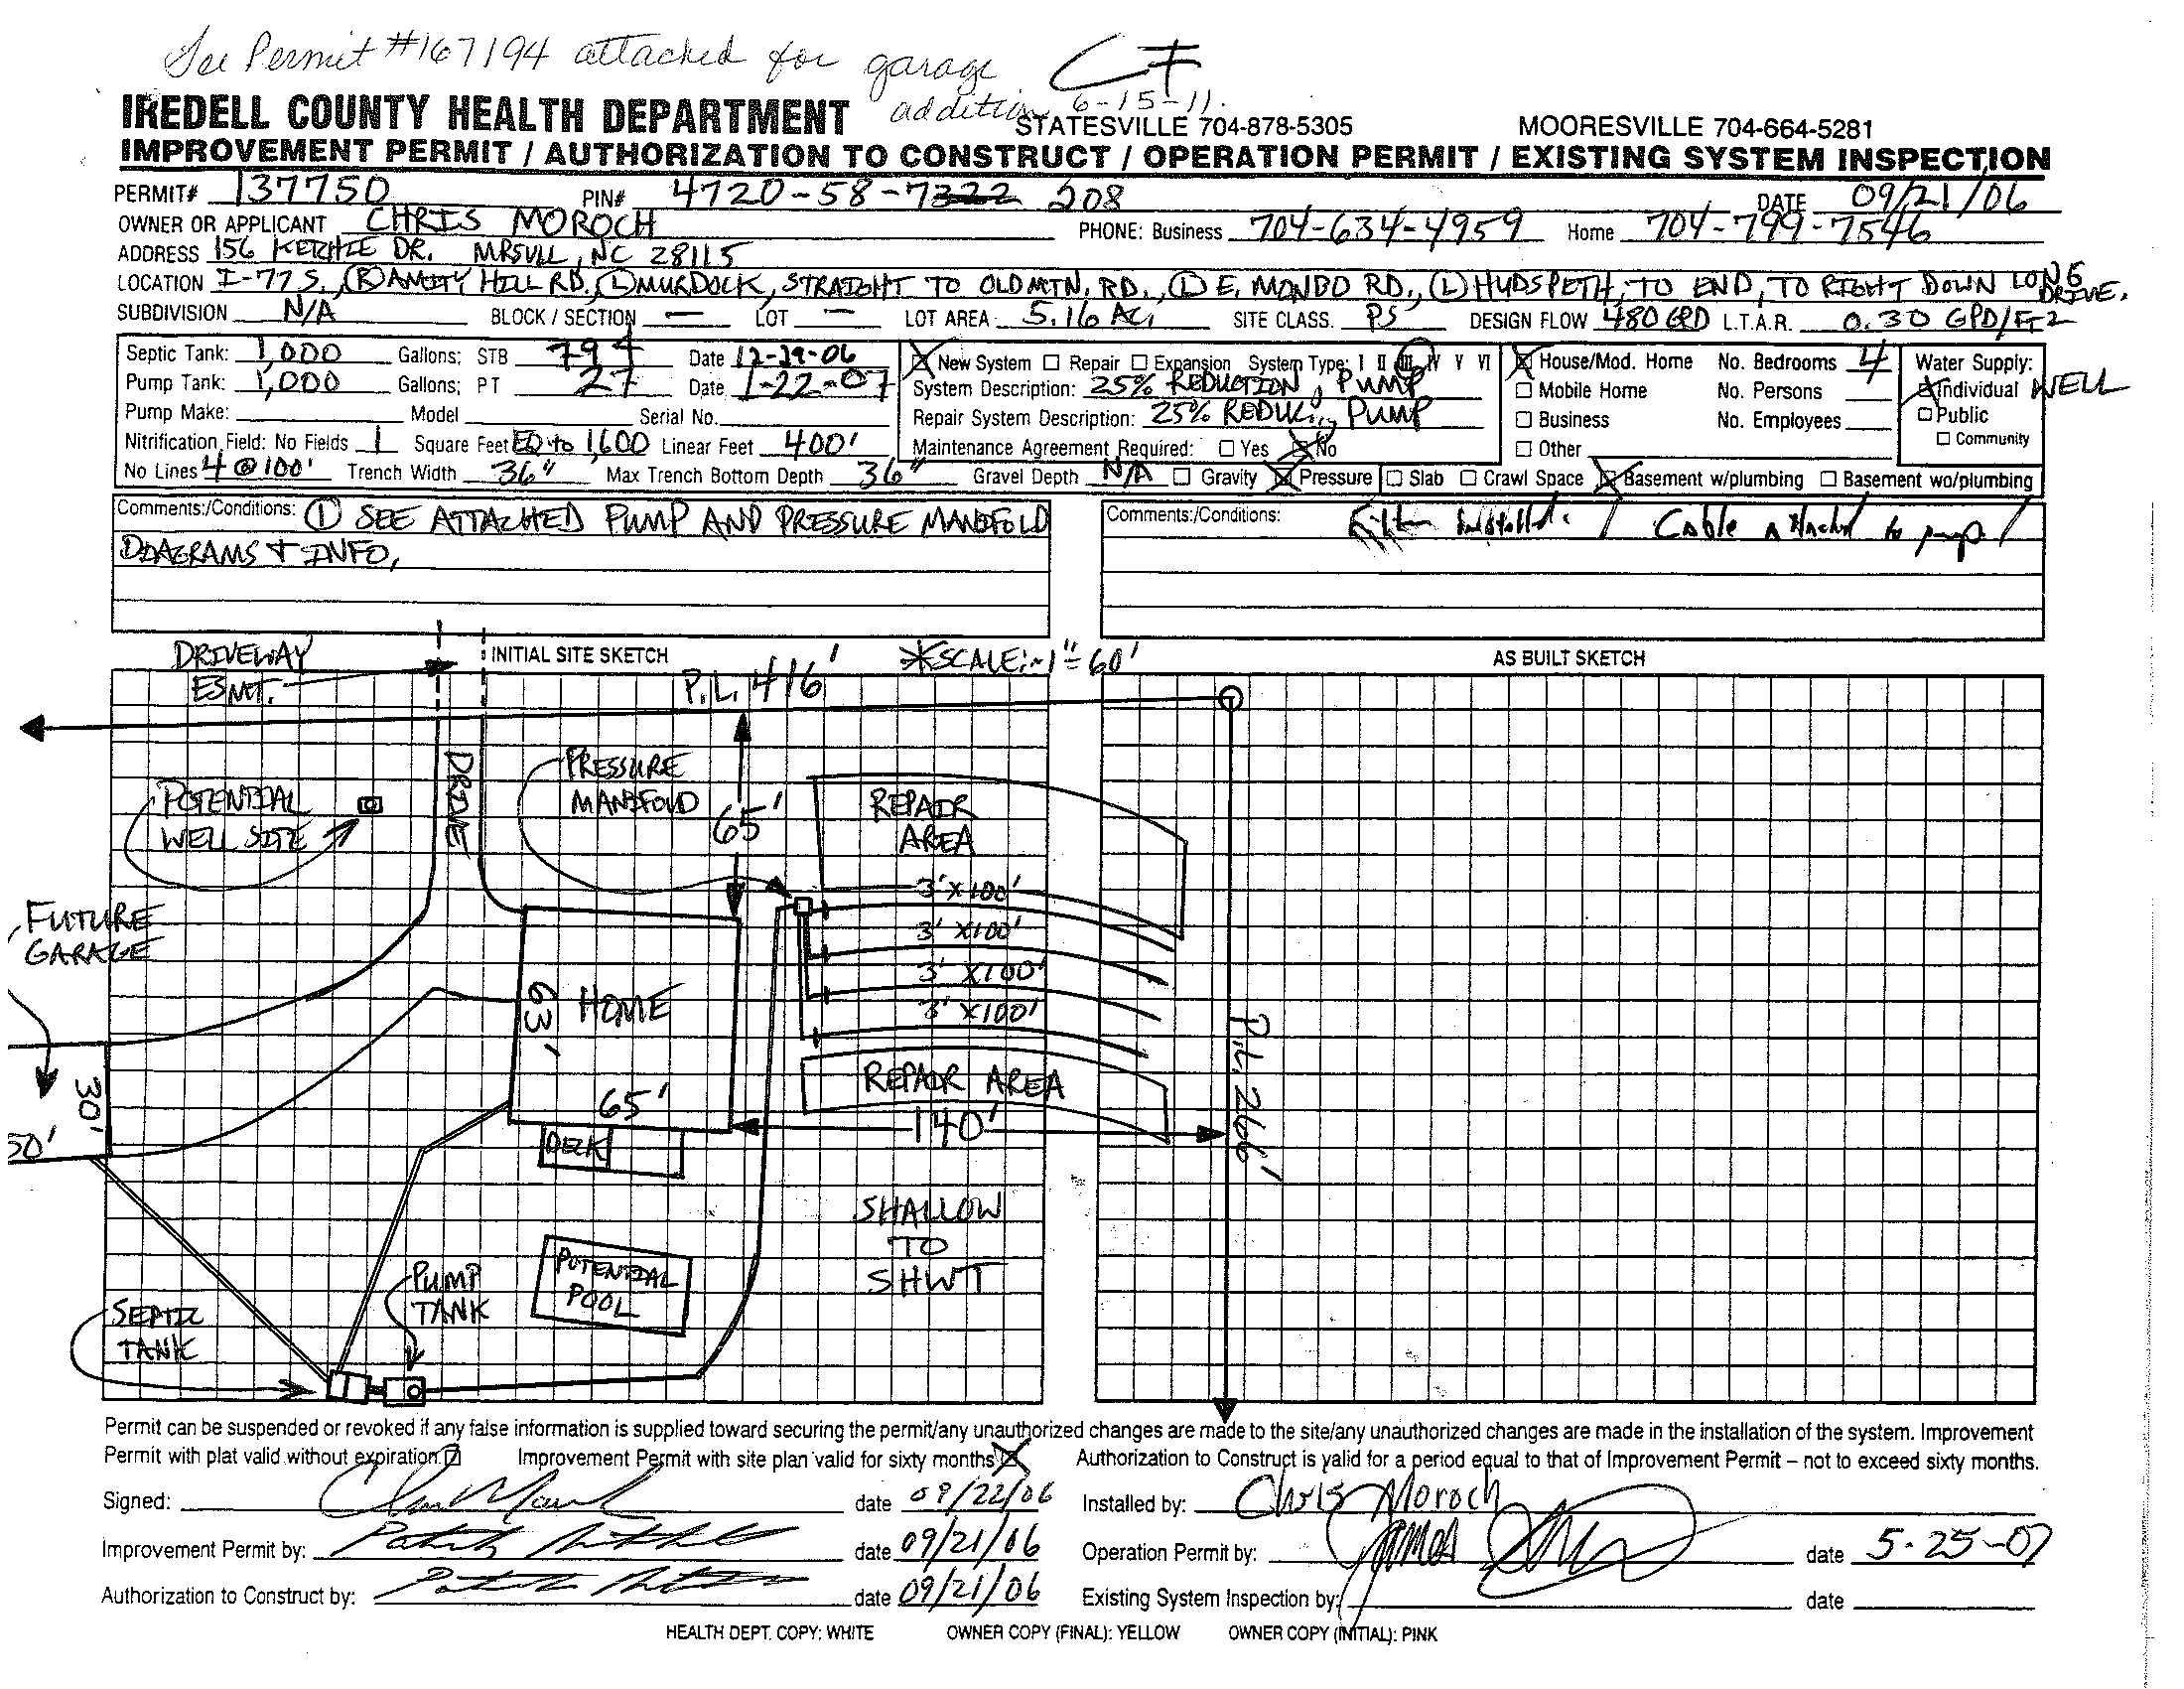 See Permit #167194 attached for garage addition CF 6-15-11.
IREDELL COUNTY HEALTH DEPARTMENT STATESVILLE 704-878-5305 MOORESVILLE 704-664-5281
IMPROVEMENT PERMIT / AUTHORIZATION TO CONSTRUCT / OPERATION PERMIT / EXISTING SYSTEM INSPECTION
PERMIT# 137750 PIN# 4720-58-7322 208 DATE 09/21/06
OWNER OR APPLICANT CHRIS MOROCH PHONE: Business 704-634-4959 Home 704-799-7546
ADDRESS 156 DR. MRSVLL, NC 28115
LOCATION I-77 S., (R) AMITY HILL RD., (L) MURDOCK, STRAIGHT TO OLD MTN. RD., (L) E. MONBO RD., (L) HUDSPETH, TO END, TO RIGHT DOWN LONG DRIVE.
SUBDIVISION N/A BLOCK / SECTION — LOT — LOT AREA 5.16 AC. SITE CLASS. PS DESIGN FLOW 480 GPD L.T.A.R. 0.30 GPD/FT2
Septic Tank: 1,000 Gallons; STB 794 Date 12-29-06 New System Repair Expansion System Type: I II III IV V VI House/Mod. Home No. Bedrooms 4 Water Supply:
Pump Tank: 1,000 Gallons; PT 27 Date 1-22-07 System Description: 25% REDUCTION, PUMP Mobile Home No. Persons Individual WELL
Pump Make: Model Serial No. Repair System Description: 25% REDUC., PUMP Business No. Employees Public
Nitrification Field: No Fields 1 Square Feet EQ to 1,600 Linear Feet 400' Maintenance Agreement Required: Yes No Other Community
No Lines 4 @ 100' Trench Width 36" Max Trench Bottom Depth 36" Gravel Depth N/A Gravity Pressure Slab Crawl Space Basement w/plumbing Basement wo/plumbing
Comments:/Conditions: (1) SEE ATTACHED PUMP AND PRESSURE MANIFOLD
DIAGRAMS + INFO.
Comments:/Conditions: installed. / Cable attached to pump /
DRIVEWAY ESMT. INITIAL SITE SKETCH *SCALE: ~1"=60' AS BUILT SKETCH
P.L. 416'
DRIVE
PRESSURE MANIFOLD
POTENTIAL WELL SITE
65'
REPAIR AREA
3'X100'
3'X100'
3'X100'
3'X100'
FUTURE GARAGE
63'
HOME
65'
30'
50'
DECK
REPAIR AREA
140'
P.L. 266'
SHALLOW TO SHWT
POTENTIAL POOL
PUMP TANK
SEPTIC TANK
Permit can be suspended or revoked if any false information is supplied toward securing the permit/any unauthorized changes are made to the site/any unauthorized changes are made in the installation of the system. Improvement
Permit with plat valid without expiration Improvement Permit with site plan valid for sixty months Authorization to Construct is valid for a period equal to that of Improvement Permit – not to exceed sixty months.
Signed: date 09/22/06 Installed by: Chris Moroch
Improvement Permit by: date 09/21/06 Operation Permit by: James date 5-25-07
Authorization to Construct by: date 09/21/06 Existing System Inspection by: date
HEALTH DEPT. COPY: WHITE OWNER COPY (FINAL): YELLOW OWNER COPY (INITIAL): PINK